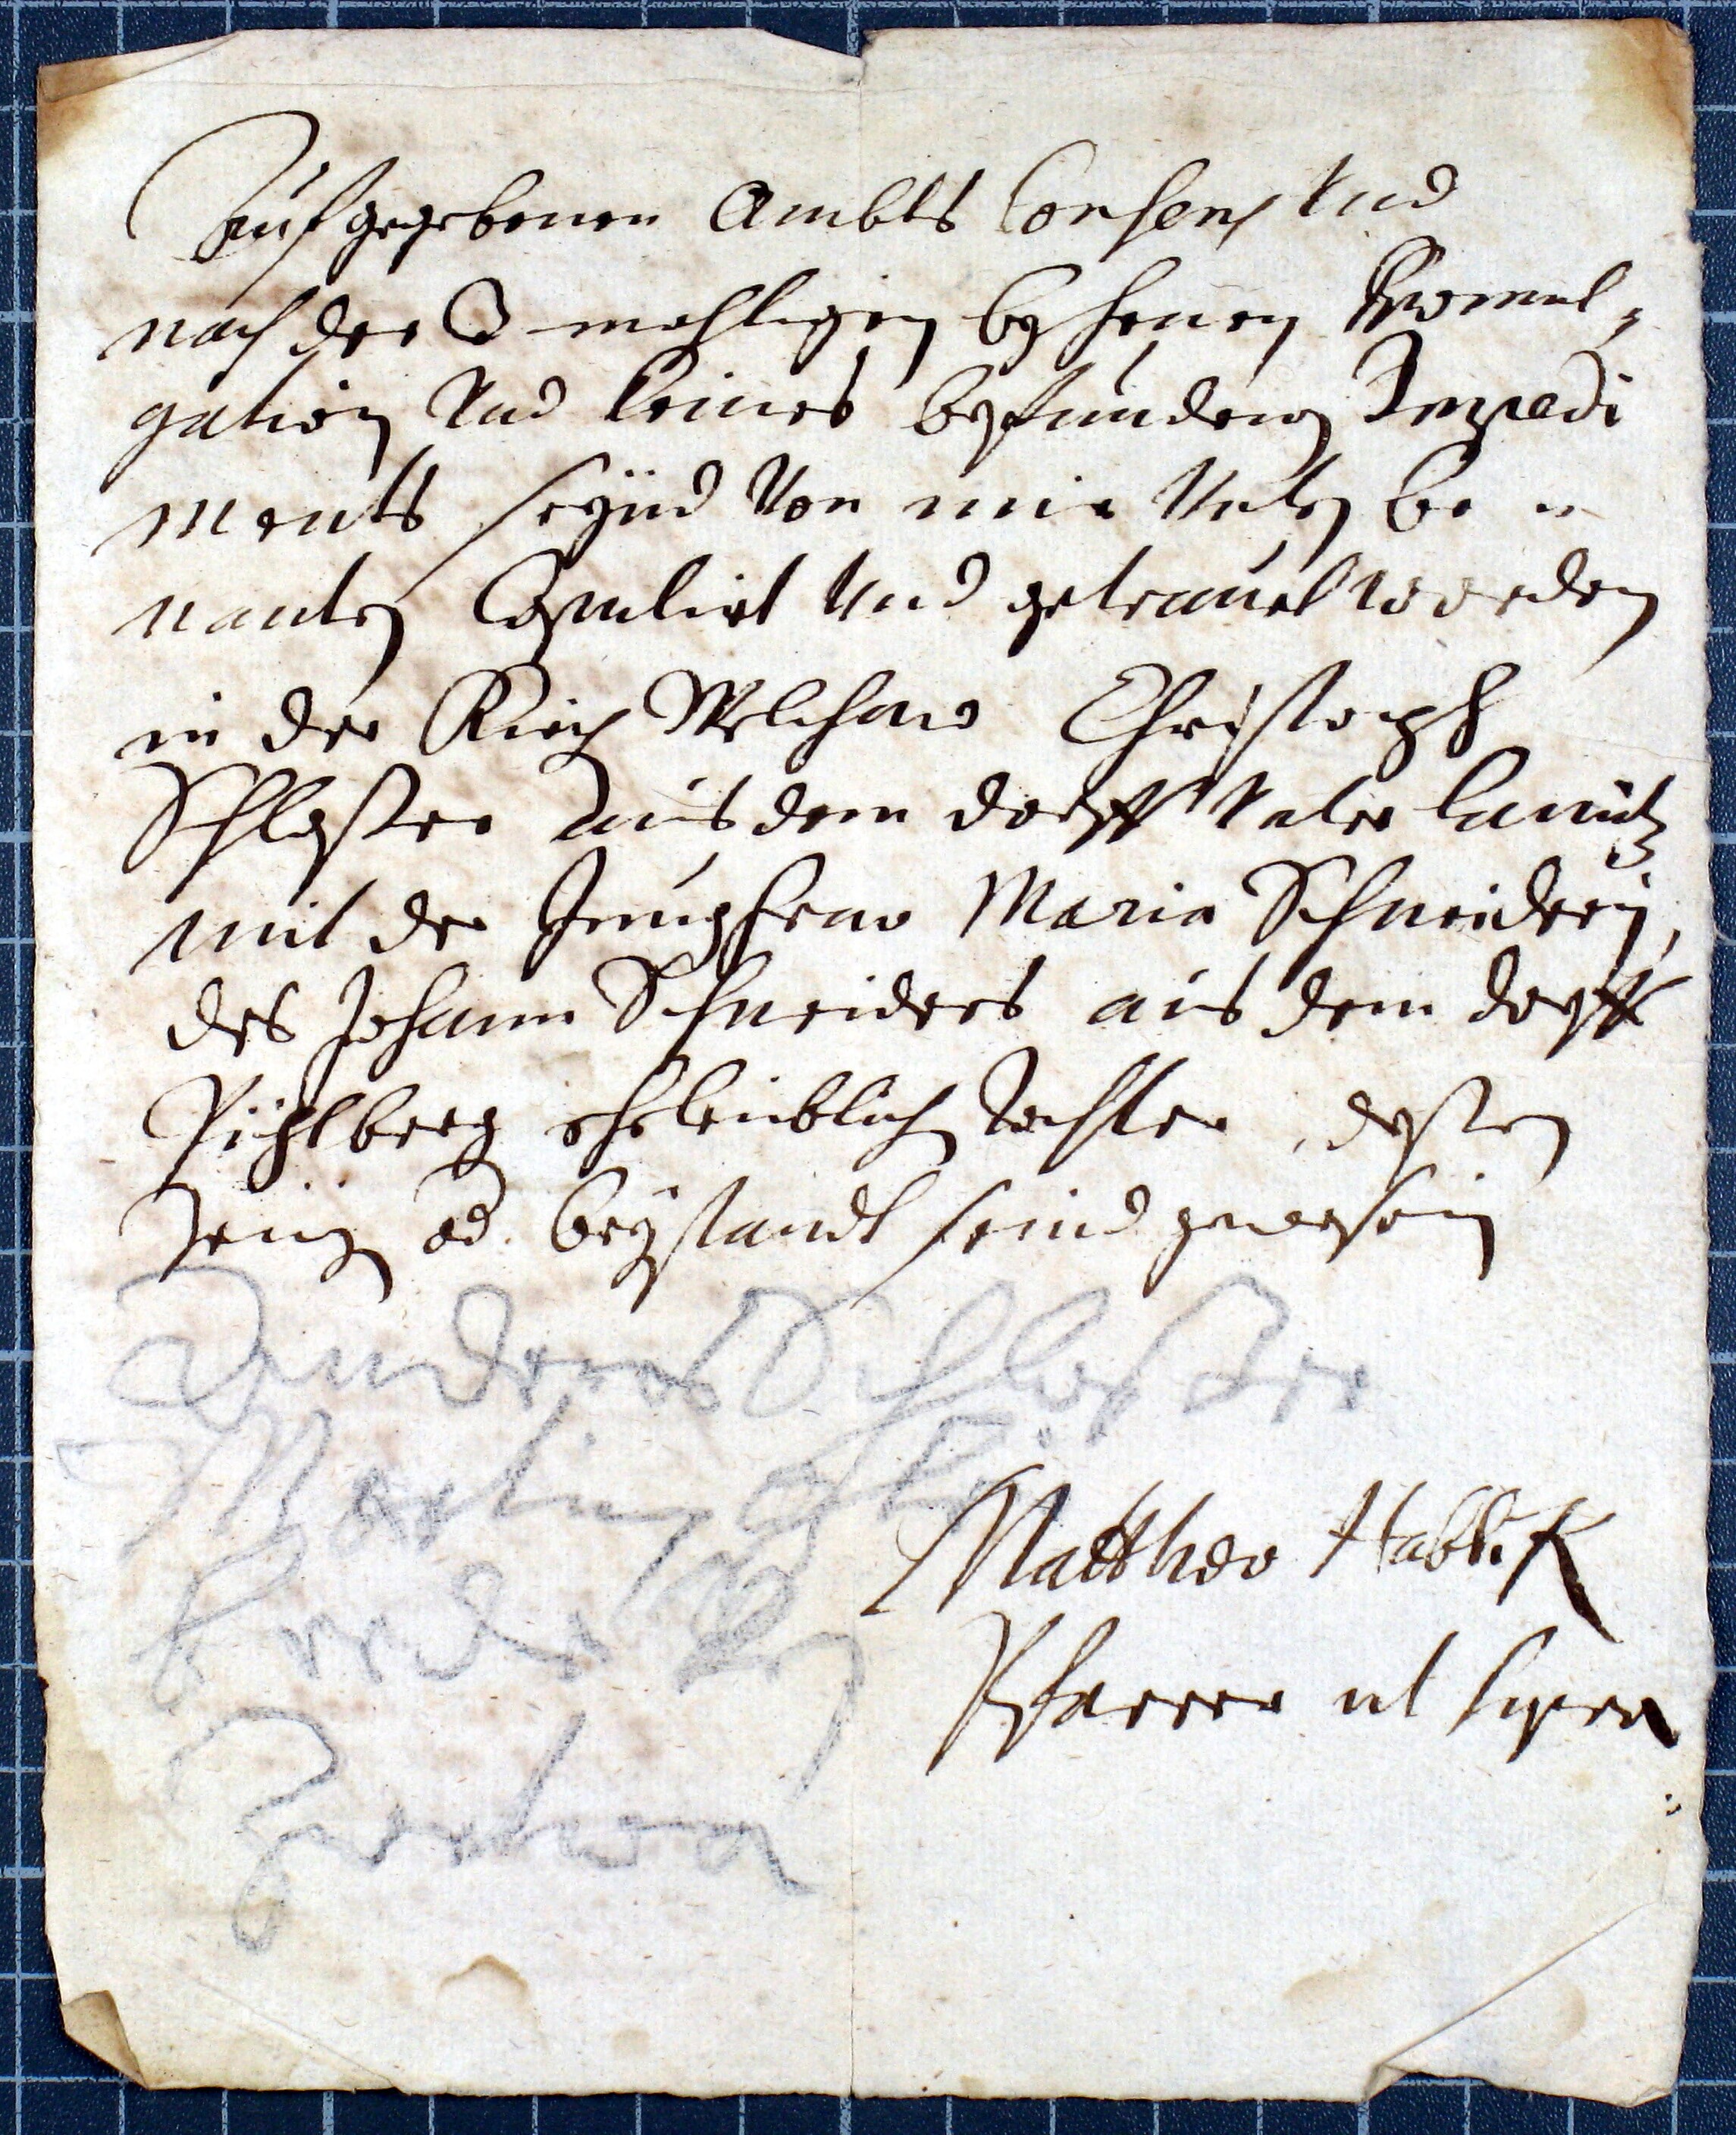 Auf gegebenen Ambts Consens Vnd
nach der 3 mahligen beschenen Promul=
gation Vnd keines befundenen Impedi
ments seÿnd Von mir Unten be=
nanten Copulirt Vnd getrauet worden
in der Kirch Welchaw Christoph
Schloßer aus dem dorff Unter Lamitz
mit der Jungfraw Maria Schneiderin,
des Johann Schneiders aus dem dorff
Pichlberg eheleiblich Tochter, dessen
Zeug od. beÿstandt seind gewesen
Andreas Schloßer
Martin
Matthæo Hablik
Pfarrer ut supra